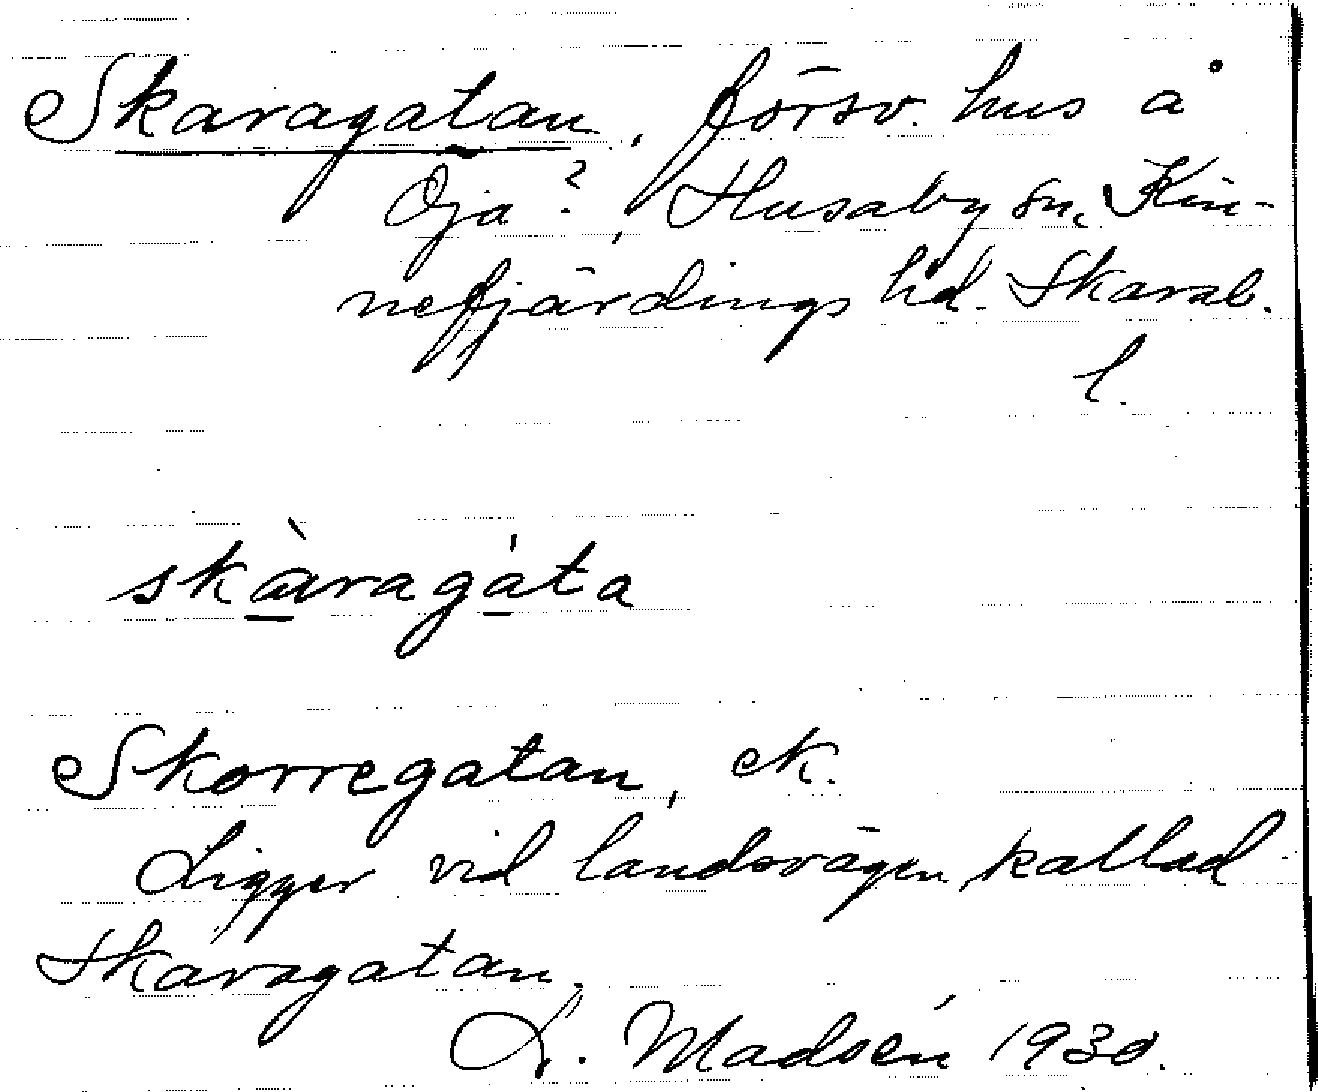 Skaragatan, försv. hus å
Öja?, Husaby sn, Kin-
nefjärdings hd. Skarab.
l.
skàragáta
Skorregatan, ek.
Ligger vid landsvägen, kallad
Skaragatan.
L. Madsén 1930.